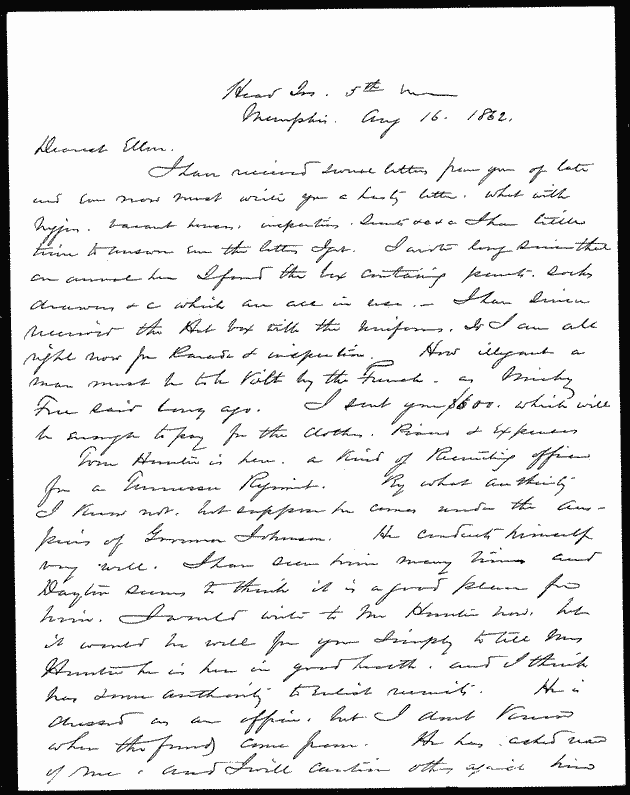 Head Qrs. 5th
Memphis. Aug 16. 1862.
Dearest Ellen.
I have received several letters from you of late
and even now must write you a hasty letter. What with
vacant houses. inspections. &c &c I have little
time to answer even the letters I get. I wrote long since that
on arrival here I found the box containing pants. socks
drawers & c which are all in use. - I have since
received the Hat box with the uniforms. So I am all
right now for Parade & inspection. How illigant a
man must be to be kilt by the French. as Micky
Free said long ago. I sent you $600. which will
be enough to pay for the clothes. Piano & Expenses
Tom Hunter is here. a kind of Recruiting officer
for a Tennessee Regiment. By what authority
I know not. but suppose he comes under the aus-
pices of Governor Johnson. He conducts himself
very well. I have seen him many times and
Dayton seems to think it is a good place for
him. I would write to Mr Hunter now. but
it would be well for you simply to tell Mrs
Hunter he is here in good health. and I think
has some authority to Enlist recruits. He is
dressed as an officer. but I dont know
where the funds come from. He has asked none
of me. and I will caution others against him